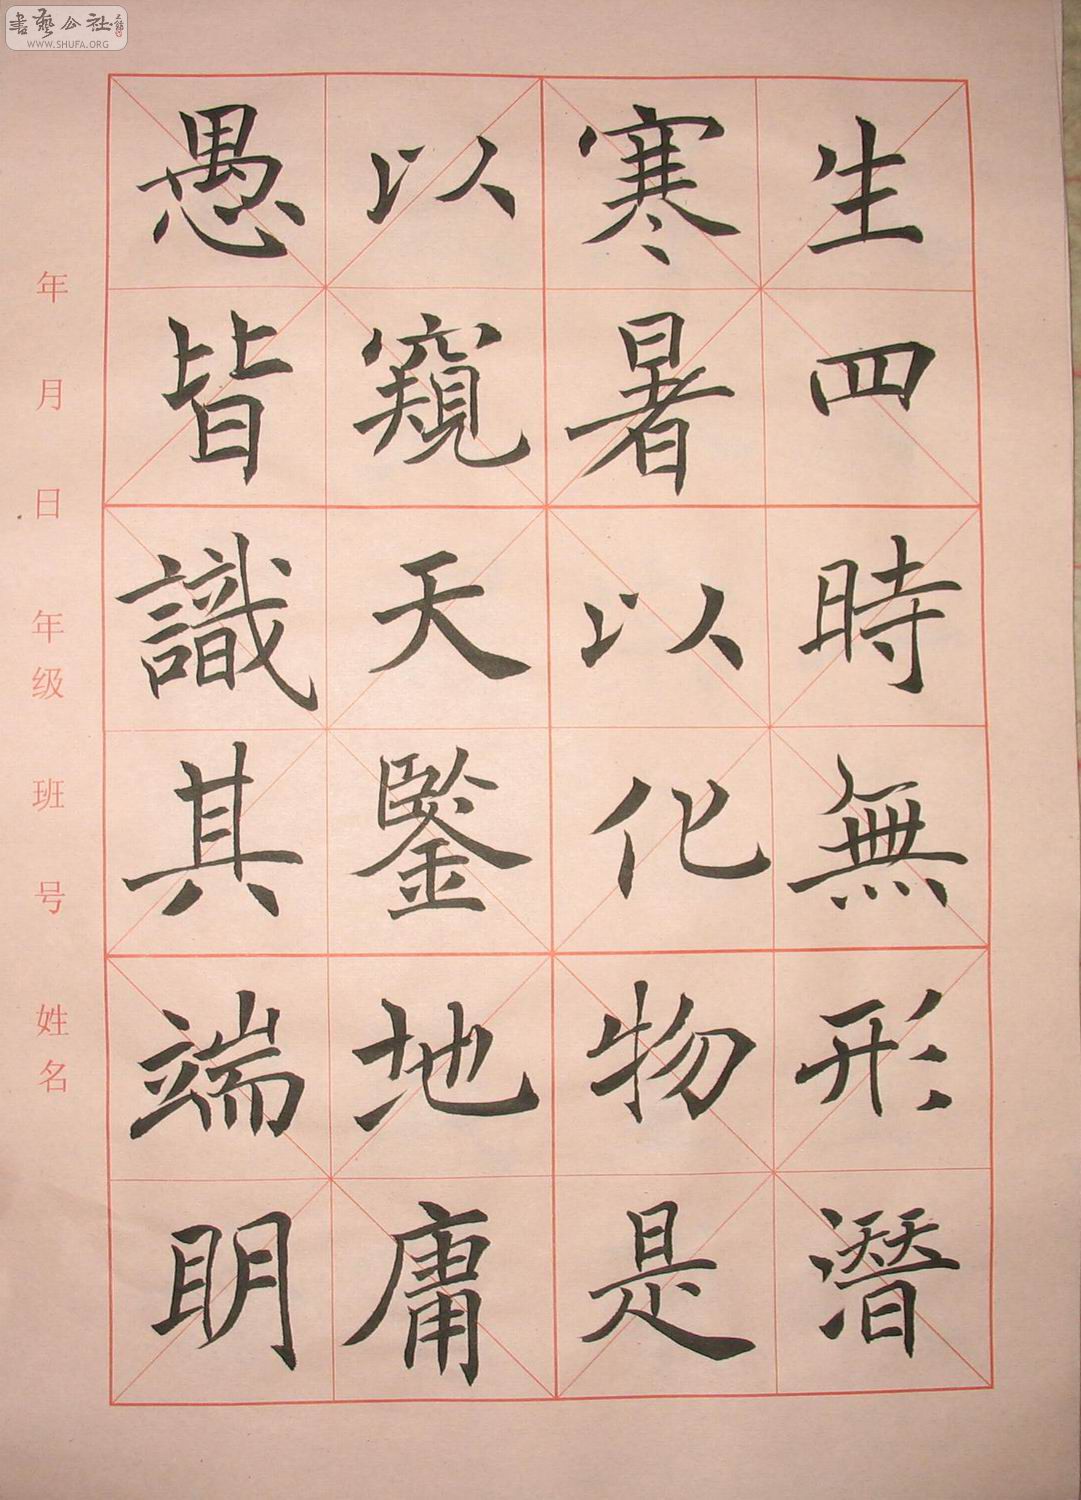 生四時無形潛
寒暑以化物是
以窺天鑒地庸
愚皆識其端明
年 月 日 年级 班 号 姓名
書藝公社
WWW.SHUFA.ORG